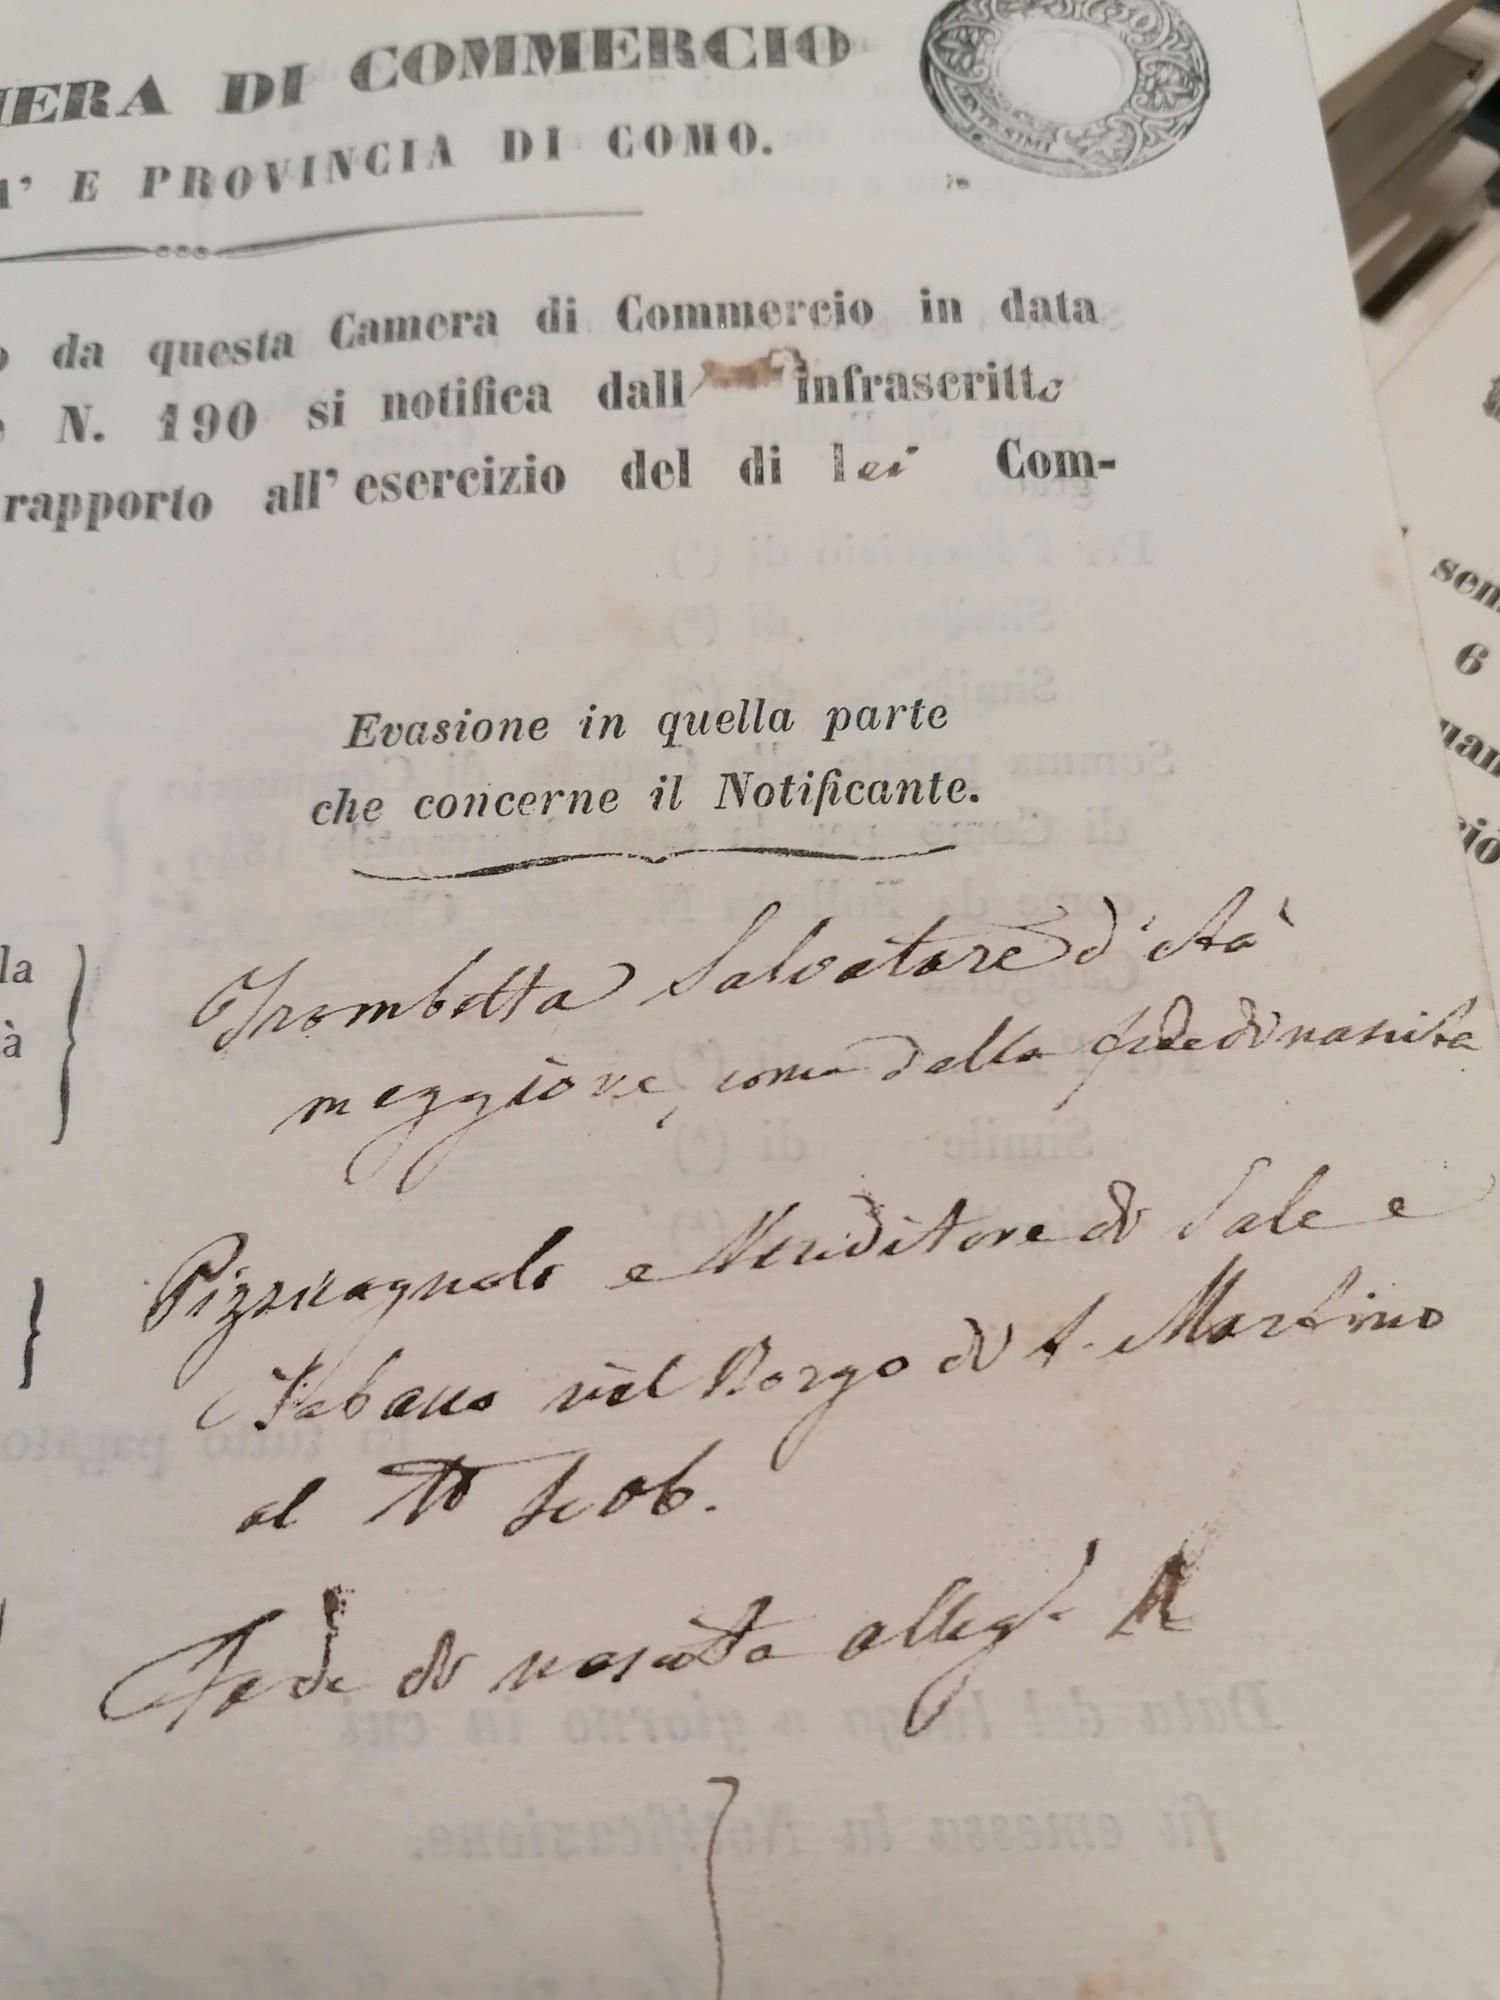 MERA DI COMMERCIO
A' E PROVINCIA DI COMO.
CENTESIMI
o da questa Camera di Commercio in data
e N. 190 si notifica dall infrascritto
rapporto all' esercizio del di lei Com-
Evasione in quella parte
che concerne il Notificante.
la
à
Trombetta Salvatore d'età
meggiore, come dalla fede di nascita
Pizzicagnolo e Venditore di Sale e
Tabacco nel Borgo di S. Martino
al N°
Fede di nascita alleg. A
sem
6
uan
io